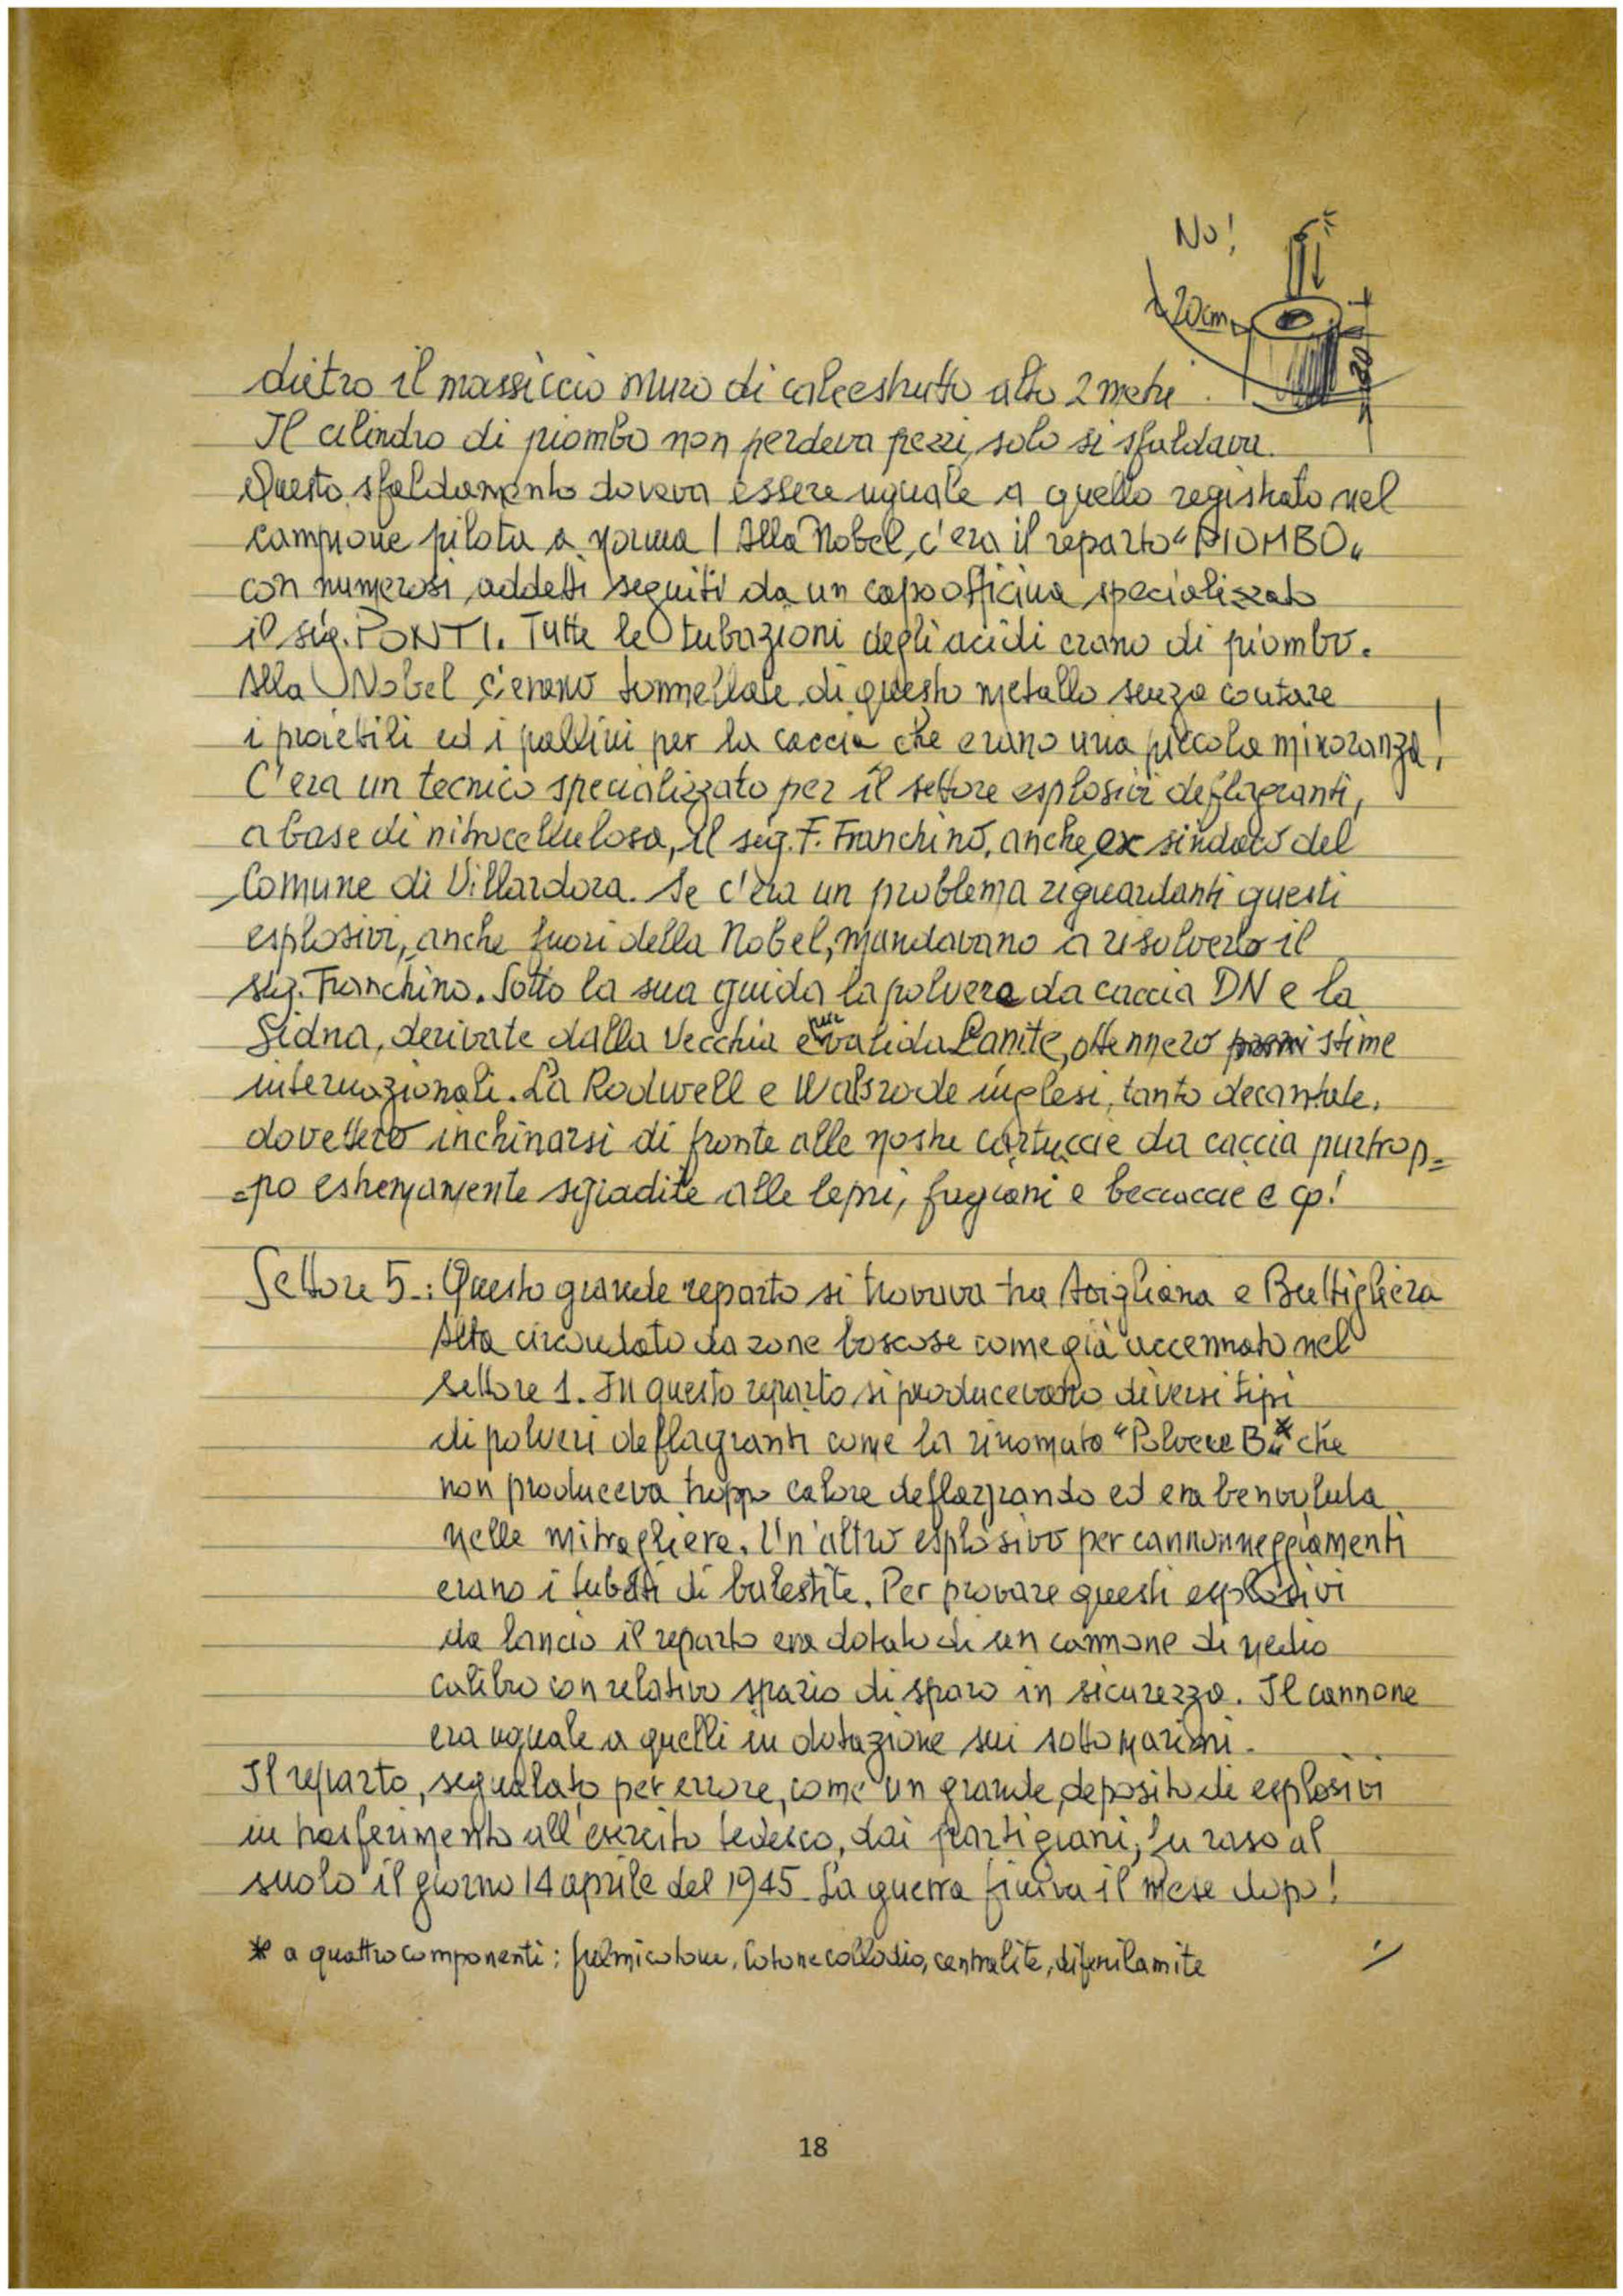 No!
20cm
20
dietro il massiccio muro di calcestrutto alto 2 metri.
Il cilindro di piombo non perdeva pezzi, solo si sfaldava.
Questo sfaldamento doveva essere uguale a quello registrato nel
campione pilota a norma! Alla Nobel, c'era il reparto "PIOMBO"
con numerosi addetti seguiti da un capo officina specializzato
il sig. PONTI. Tutte le tubazioni degli acidi erano di piombo.
Alla Nobel c'erano tonnellate di questo metallo senza contare
i proiettili ed i pallini per la caccia che erano una piccola minoranza!
C'era un tecnico specializzato per il settore esplosivi deflagranti,
a base di nitrocellulosa, il sig. F. Franchino, anche ex sindaco del
Comune di Villardora. Se c'era un problema riguardanti questi
esplosivi, anche fuori della Nobel, mandavano a risolverlo il
sig. Franchino. Sotto la sua guida la polvere da caccia DN e la
Sidna, derivate dalla vecchia e pur valida Lanite, ottennero stime
internazionali. La Rodwell e Walsrode inglesi, tanto decantate,
dovettero inchinarsi di fronte alle nostre cartuccie da caccia purtrop=
=po estremamente sgradite alle lepri, fagiani e beccaccie e cp!
Settore 5.: Questo grande reparto si trovava tra Avigliana e Buttigliera
Alta circondato da zone boscose come già accennato nel
settore 1. In questo reparto si producevano diversi tipi
di polveri deflagranti come la rinomata "Polvere B"* che
non produceva troppo calore deflagrando ed era benvoluta
nelle mitragliere. Un'altro esplosivo per cannonneggiamenti
erano i tubetti di balestite. Per provare questi esplosivi
da lancio il reparto era dotato di un cannone di medio
calibro con relativo spazio di sparo in sicurezza. Il cannone
era uguale a quelli in dotazione sui sottomarini.
Il reparto, segnalato per errore, come un grande deposito di esplosivi
in trasferimento all'esercito tedesco, dai partigiani, fu raso al
suolo il giorno 14 aprile del 1945. La guerra finiva il mese dopo!
* a quattro componenti: fulmicotone, cotone collodio, centralite, difenilamite
18